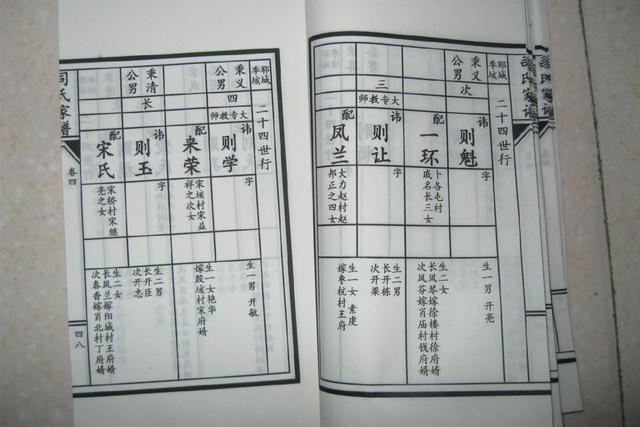 郓城
季垓
二十四世行
秉义
公男
次
讳
则魁
字
生一男 开亮
配
一环
卜各屯村
戚名长三女
生二女
长凤琴嫁徐楼村徐府婿
次凤芬嫁肖庙村钱府婿
公男
三
大专教师
讳
则让
字
生二男
长开栋
次开梁
生一女 素虔
嫁枣杭村王府
配
凤兰
大力赵村赵
邦正之四女
二十四世行
秉义
公男
四
大专教师
讳
则学
字
生一男 开敏
配
来荣
宋垓村宋益
祥之次女
生一女艳华
嫁殷垓村宋府婿
秉清
公男
长
讳
则玉
字
生二男
长开臣
次开忠
配
宋氏
宋桥村宋继
亮之女
生二女
长凤兰嫁阳城村王府婿
次春香嫁肖北村丁府婿
氏家谱
卷四
四八
氏家谱